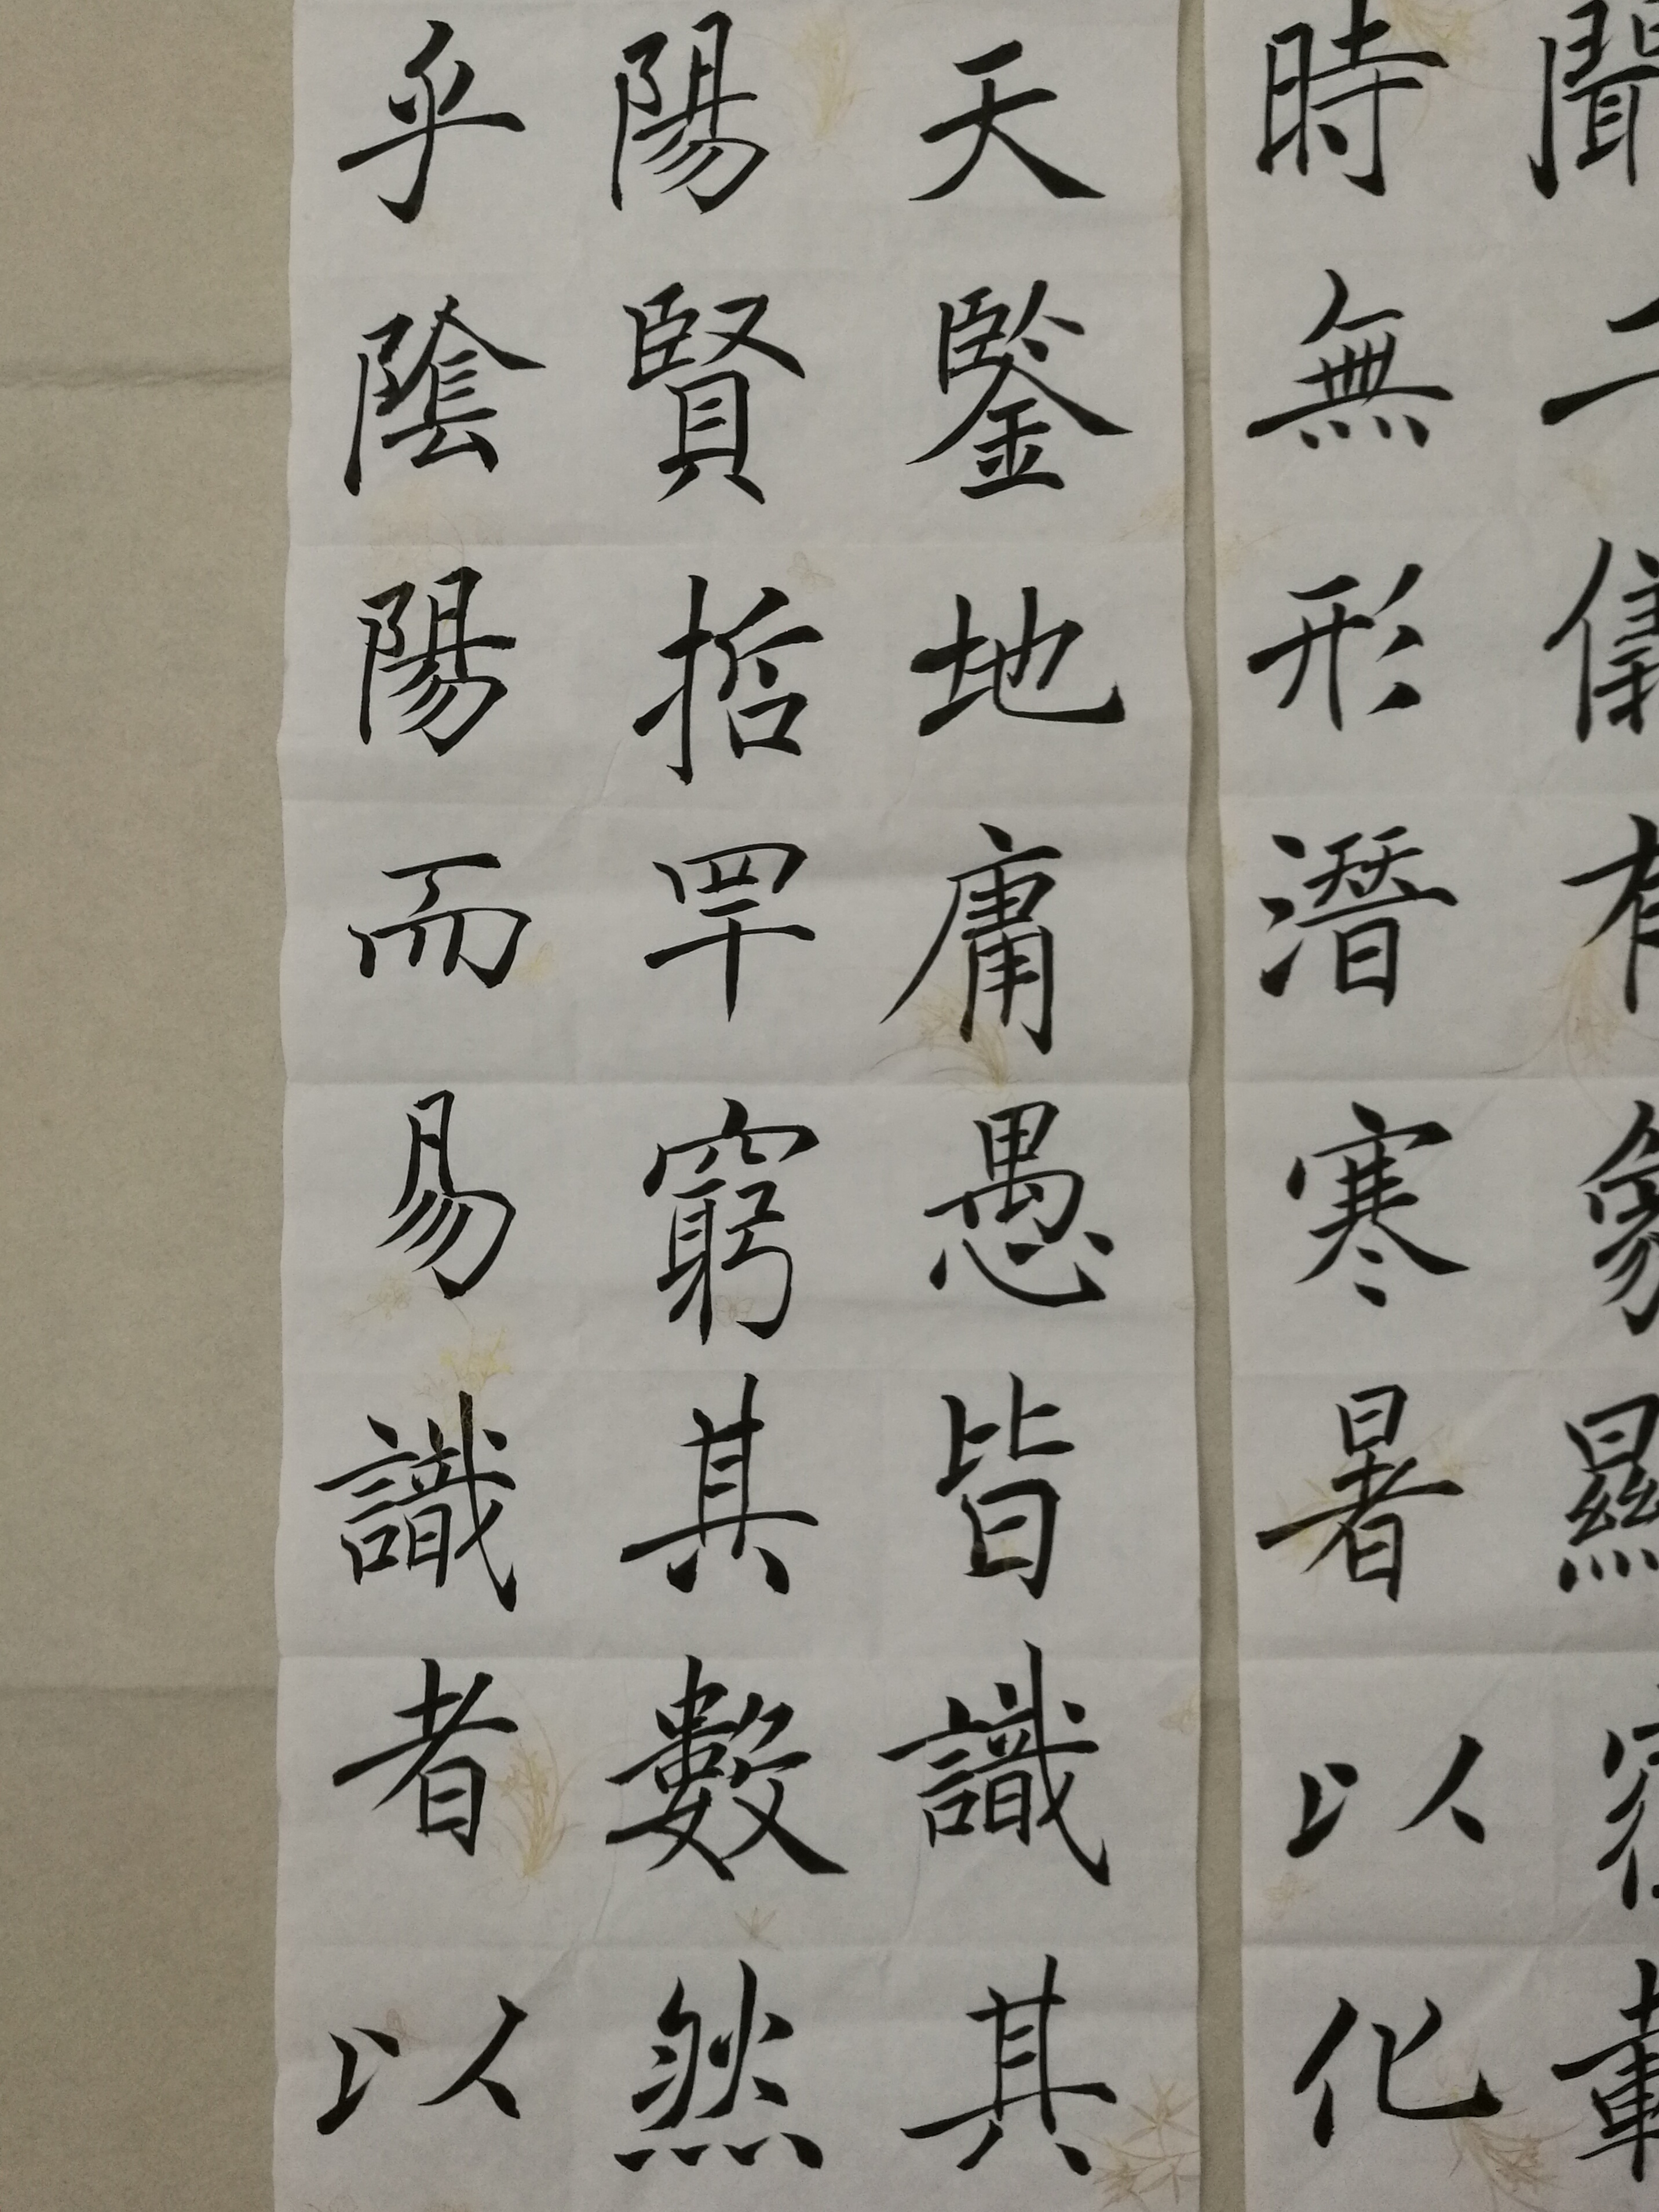 聞二儀有象顯覆載
時無形潛寒暑以化
天鑒地庸愚皆識其
陽賢哲罕窮其數然
乎陰陽而易識者以